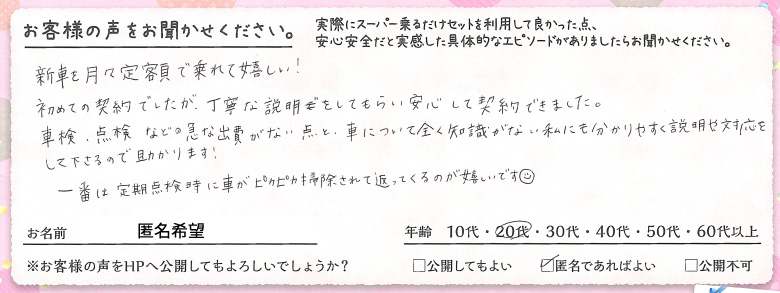 お客様の声をお聞かせください。
実際にスーパー乗るだけセットを利用して良かった点、
安心安全だと実感した具体的なエピソードがありましたらお聞かせください。
新車を月々定額で乗れて嬉しい!
初めての契約でしたが、丁寧な説明をしてもらい安心して契約できました。
車検、点検などの急な出費がない点と、車について全く知識がない私にも分かりやすく説明や対応を
して下さるので助かります!
一番は定期点検時に車がピカピカに掃除されて返ってくるのが嬉しいです☺
お名前 匿名希望
年齢 10代・20代・30代・40代・50代・60代以上
※お客様の声をHPへ公開してもよろしいでしょうか?
□公開してもよい ☑匿名であればよい □公開不可